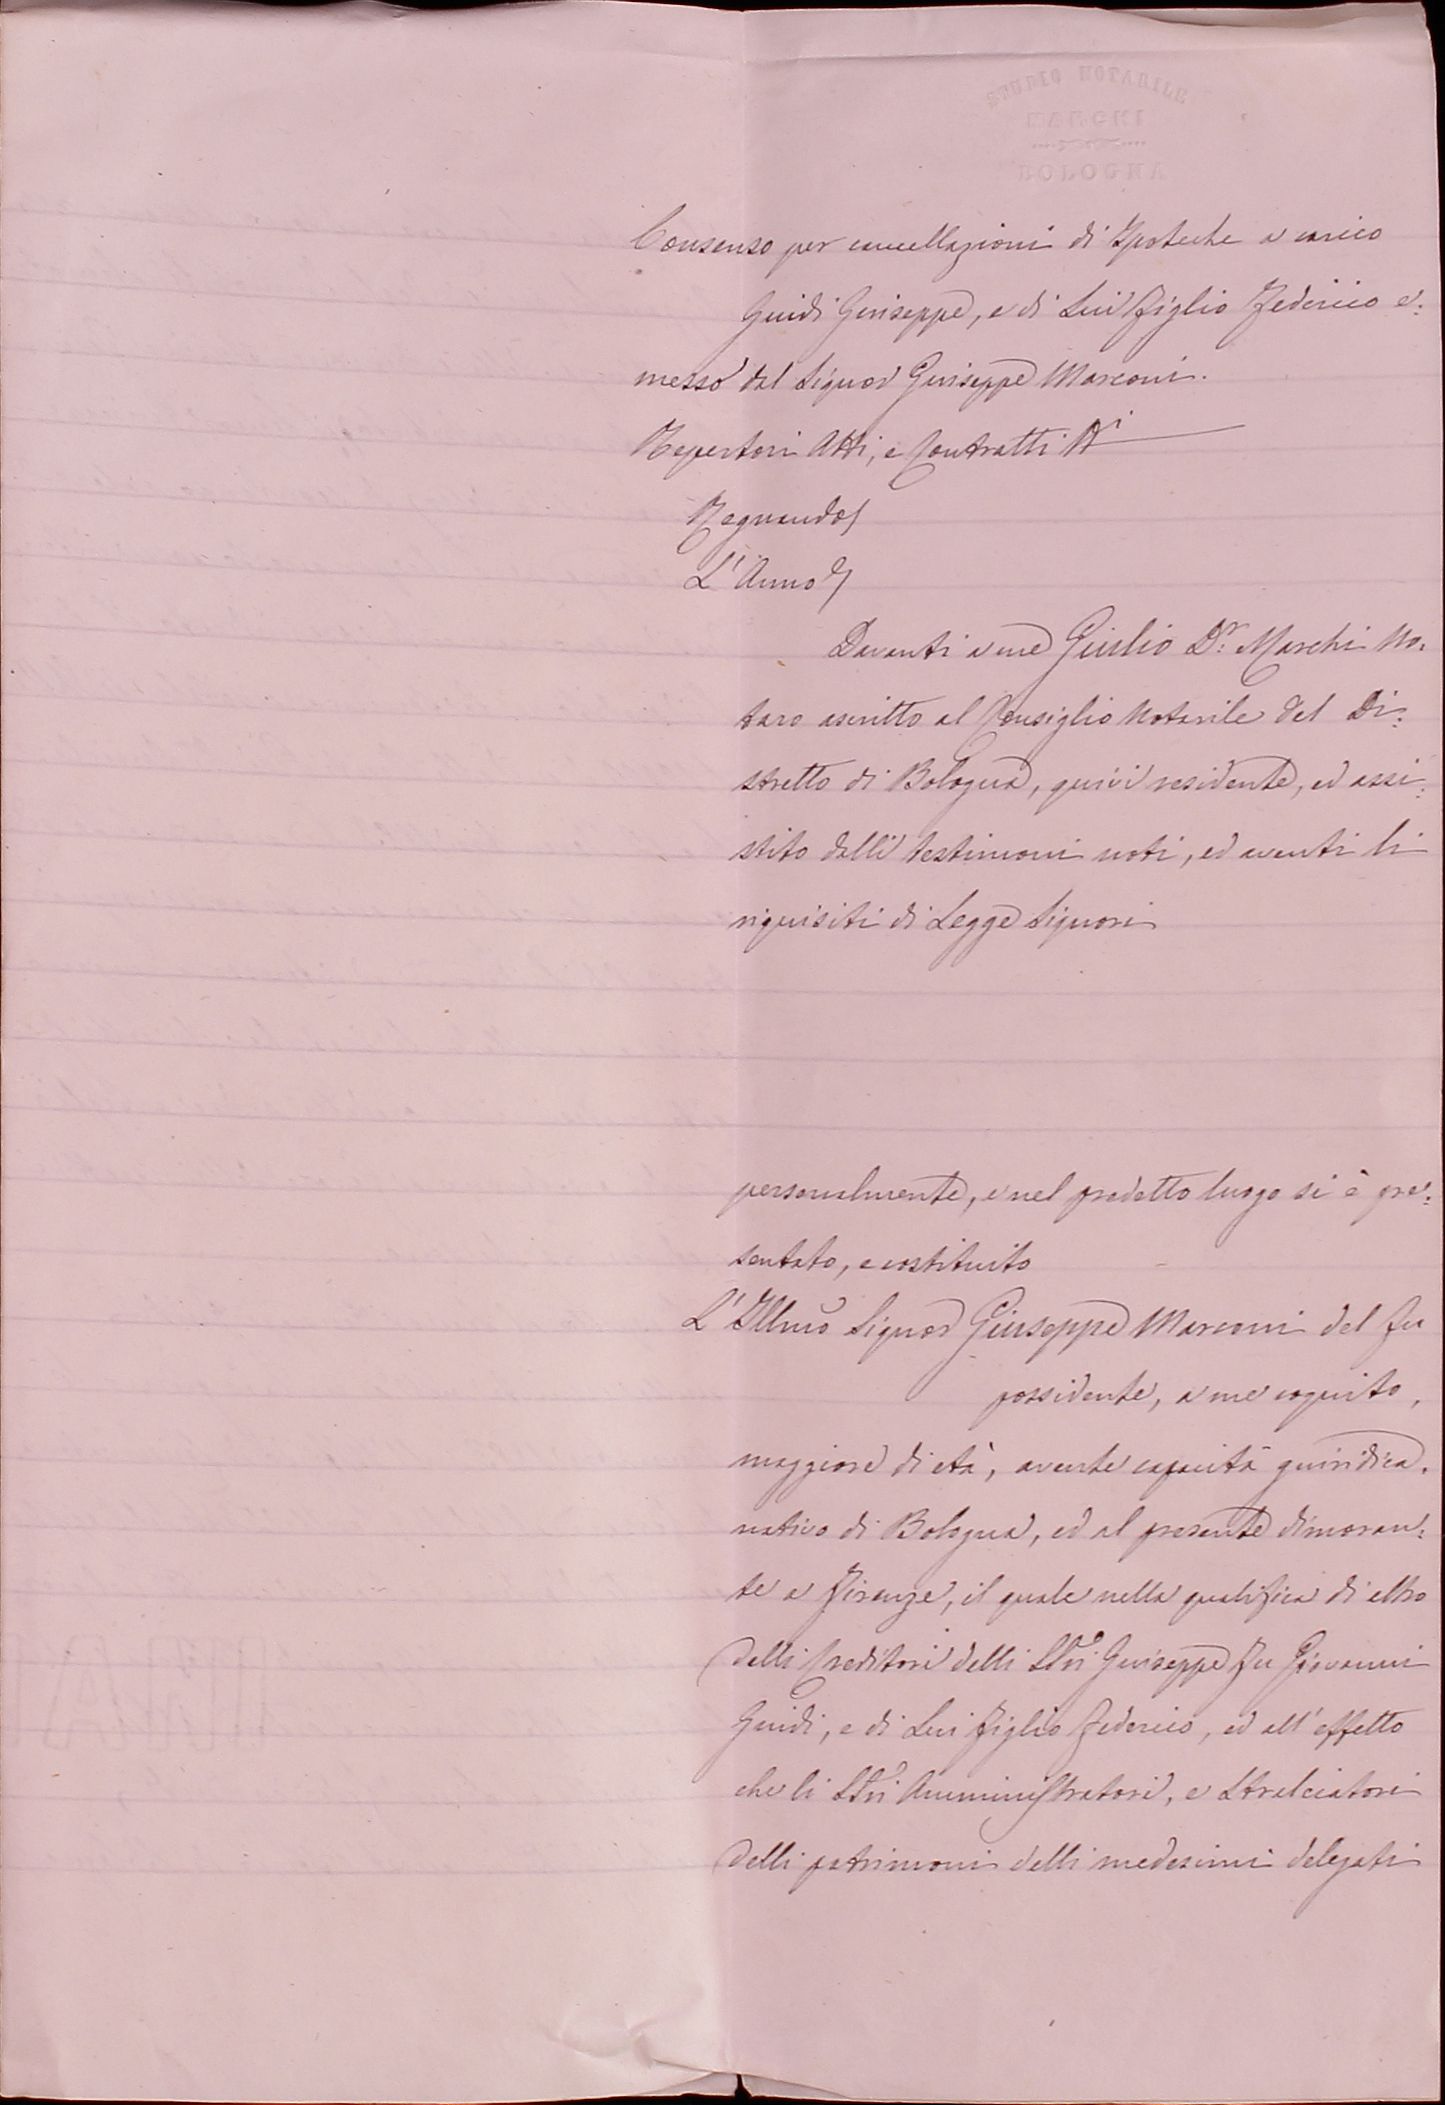 STUDIO NOTARILE
MARCHI
BOLOGNA
Consenso per cancellazioni di Ipoteche a carico
Guidi Giuseppe, e di Lui figlio Federico e:
messo dal Signor Giuseppe Marconi.
Repertori Atti, e Contratti N.i
Regnando
L'Anno
Davanti a me Giulio D.r Marchi No:
taro ascritto al Consiglio Notarile del Di:
stretto di Bologna, quivi residente, ed assi:
stito dalli testimoni noti, ed aventi li
riquisiti di Legge Signori
personalmente, e nel predetto luogo si è pre:
sentato, e costituito
L'Illmo Signor Giuseppe Marconi del fu
possidente, a me cognito,
maggiore di età, avente capacità giuridica,
nativo di Bologna, ed al presente dimoran:
te a Firenze, il quale nella qualifica di altro
delli Creditori delli SS.ri Giuseppe fu Giovanni
Guidi, e di Lui figlio Federico, ed all'effetto
che li SS.ri Amministratori, e Stralciatori
delli patrimoni delli medesimi delegati